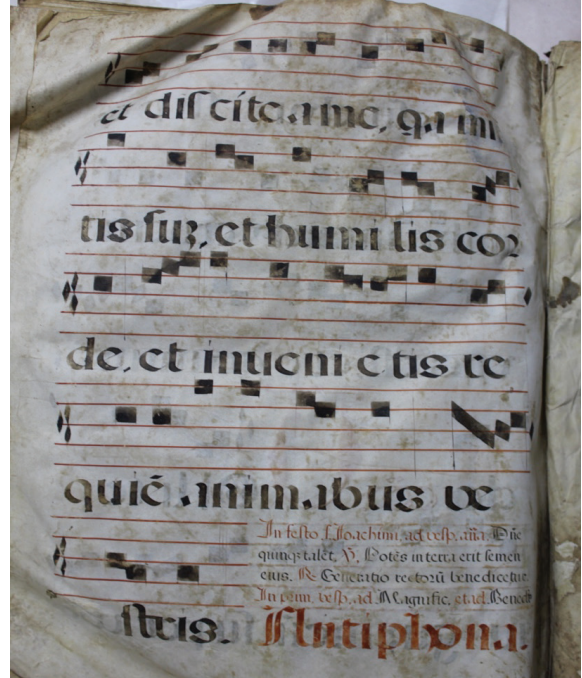 et discite a me, q.a mi
tis suȝ, et humi lis cor
de, et inueni e tis re
quiē animabus ve
In festo s. Joachim, ad vesp. añа. Dñe
quinq; talēt, ℣. Potēs in terra erit semen
eius. ℟. Generatio rectorū benedicetur.
In primi. vesp. ad Magnific. et ad Benedic
stris. Antiphona.